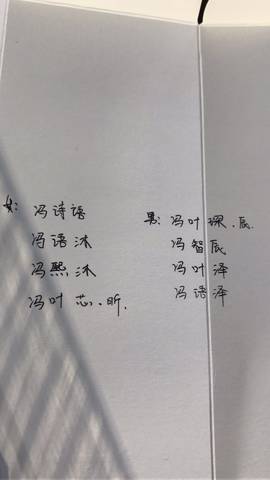 女: 冯诗语
冯语沐
冯熙沐
冯叶 芯、昕.
男: 冯叶 琛、辰.
冯智辰
冯叶泽
冯语泽